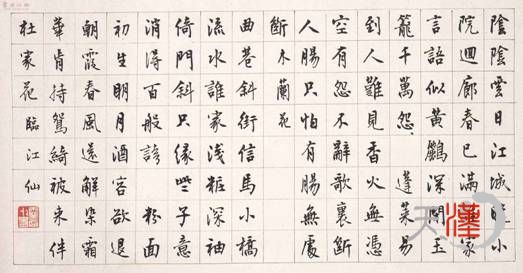 陰陰雲日江城晚小
院迴廊春已滿誰家
言語似黃鸝深閉玉
籠千萬怨 蓬萊易
到人難見香火無憑
空有怨不辭歌裏斷
人腸只怕有腸無處
斷 木蘭花
曲巷斜街信馬小橋
流水誰家淺粧深袖
倚門斜只緣些子意
消得百般誇 粉面
初生明月酒容欲退
朝霞春風還解染霜
華肯持鴛綺被來伴
杜家花 臨江仙
天漢